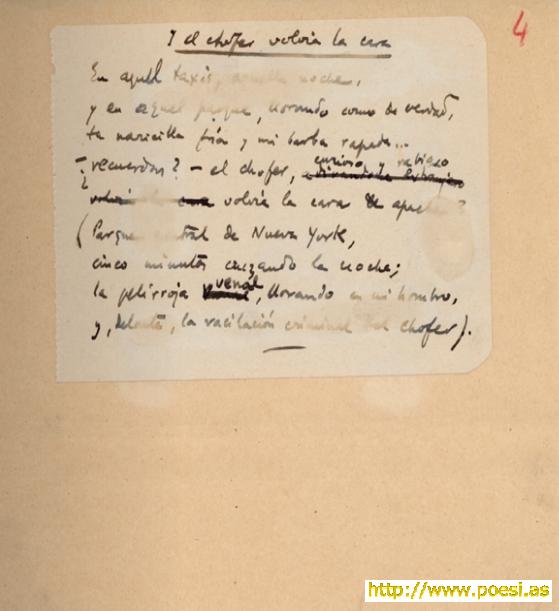 4
Y el chofer volvía la cara
En aquel taxis, aquella noche,
y en aquel parque, llorando como de verdad,
tu naricilla fría y mi barba rapada...
¿recuerdas? – el chofer, curioso y rabioso
volvía la cara volvía la cara de apache?
(Parque central de Nueva York,
cinco minutos cruzando la noche;
la pelirroja venal, llorando en mi hombro,
y, delante, la vacilación criminal del chofer).
http://www.poesi.as